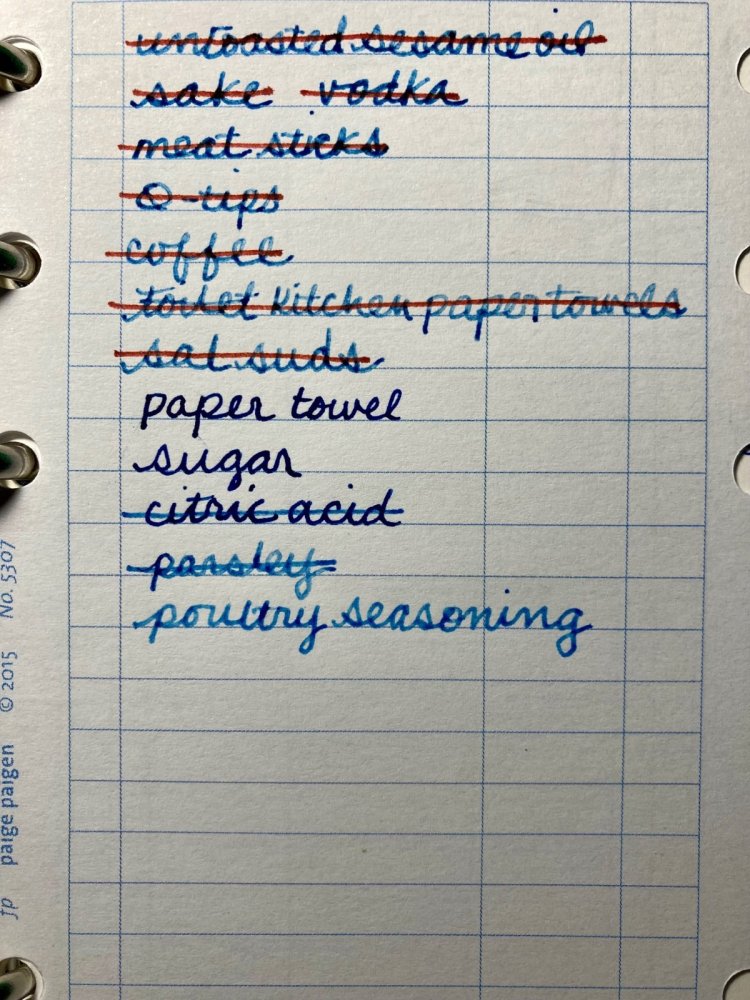 untoasted sesame oil
sake vodka
meat sticks
Q-tips
coffee
toilet kitchen paper towels
sal suds
paper towel
sugar
citric acid
parsley
poultry seasoning
fp paige paigen © 2015 No. 5307